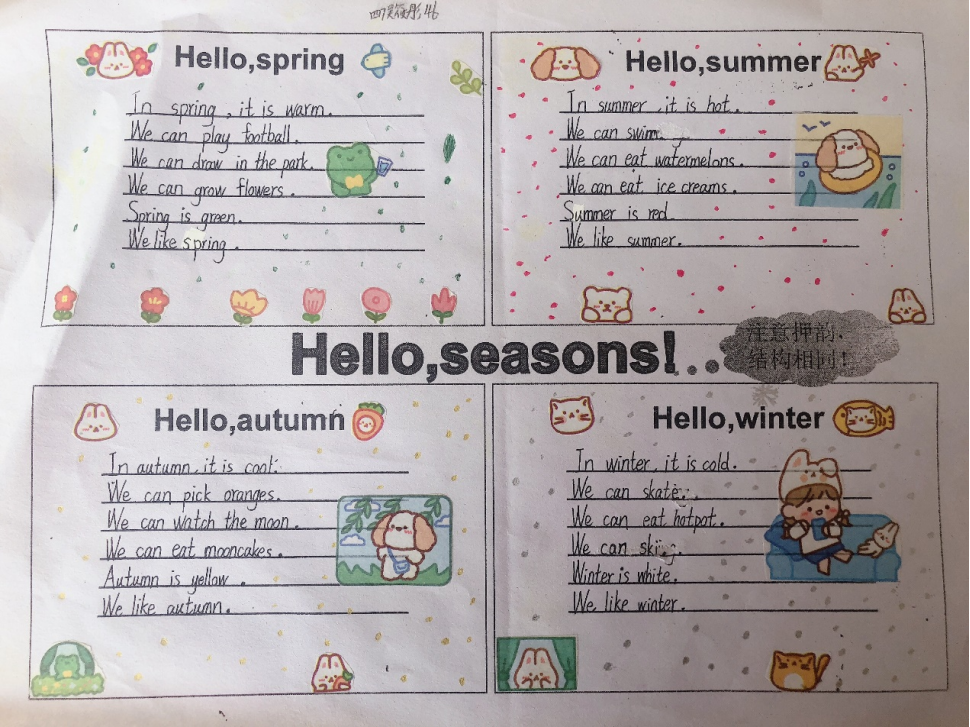 46
Hello,spring
In spring, it is warm.
We can play football.
We can draw in the park.
We can grow flowers.
Spring is green.
We like spring.
Hello,summer
In summer, it is hot.
We can swim.
We can eat watermelons.
We can eat ice creams.
Summer is red
We like summer.
Hello,seasons!...
注意押韵、
结构相同!
Hello,autumn
In autumn, it is cool.
We can pick oranges.
We can watch the moon.
We can eat mooncakes.
Autumn is yellow.
We like autumn.
Hello,winter
In winter, it is cold.
We can skate.
We can eat hotpot.
We can ski.
Winter is white.
We like winter.